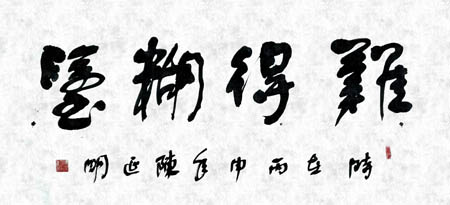 難得糊塗
時在丙申年陳延明